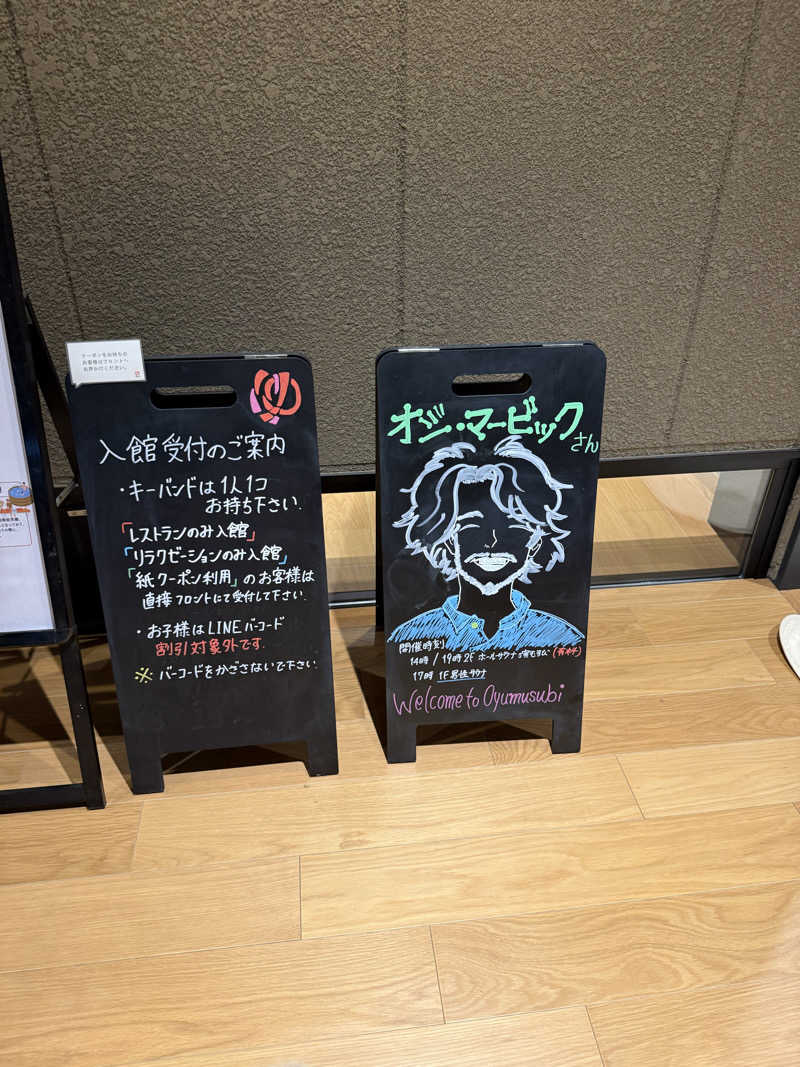 クーポンをお持ちの
お客様はフロントへ
お声がけください。
入館受付のご案内
・キーバンドは1人1コ
お持ち下さい。
「レストランのみ入館」
「リラクゼーションのみ入館」
「紙クーポン利用」のお客様は
直接フロントにて受付して下さい。
・お子様はLINEバーコード
割引対象外です。
※バーコードをかざさないで下さい。
オジ・マービックさん
開催時刻
14時/19時2F ホールサウナ
17時 1F男性サウナ
Welcome to Oyumusubi